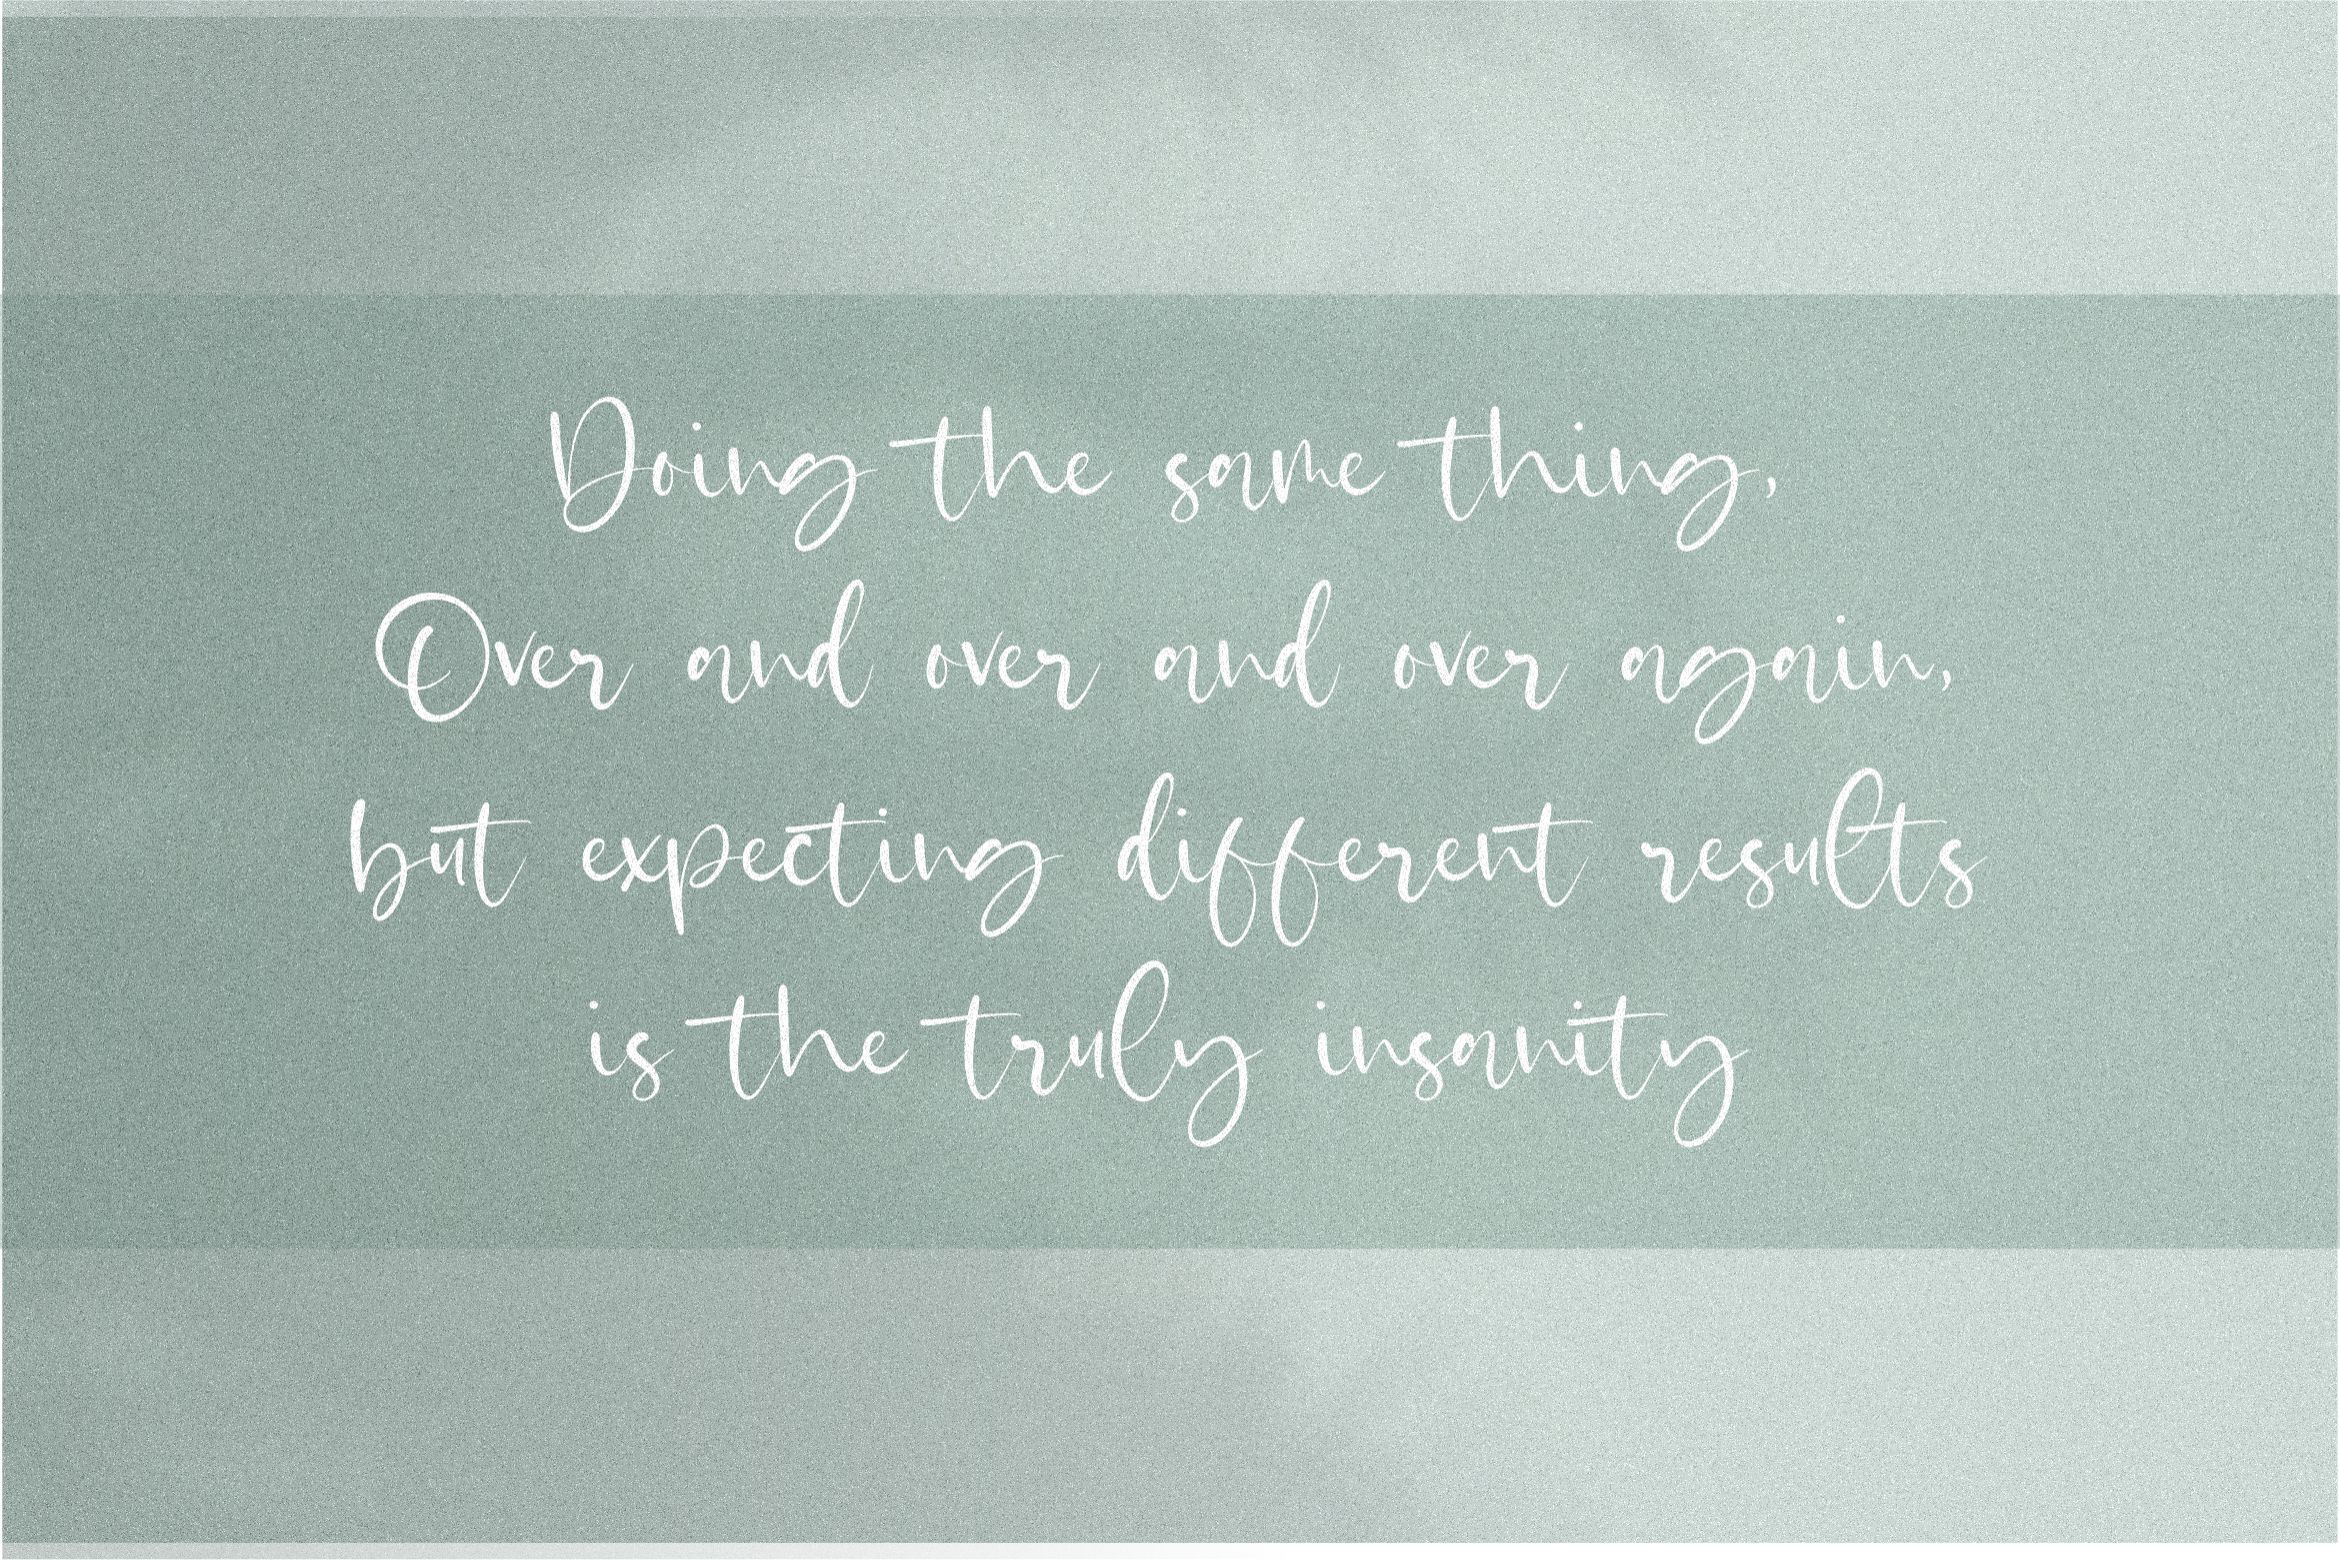 Doing the same thing,
Over and over and over again,
but expecting different results
is the truly insanity